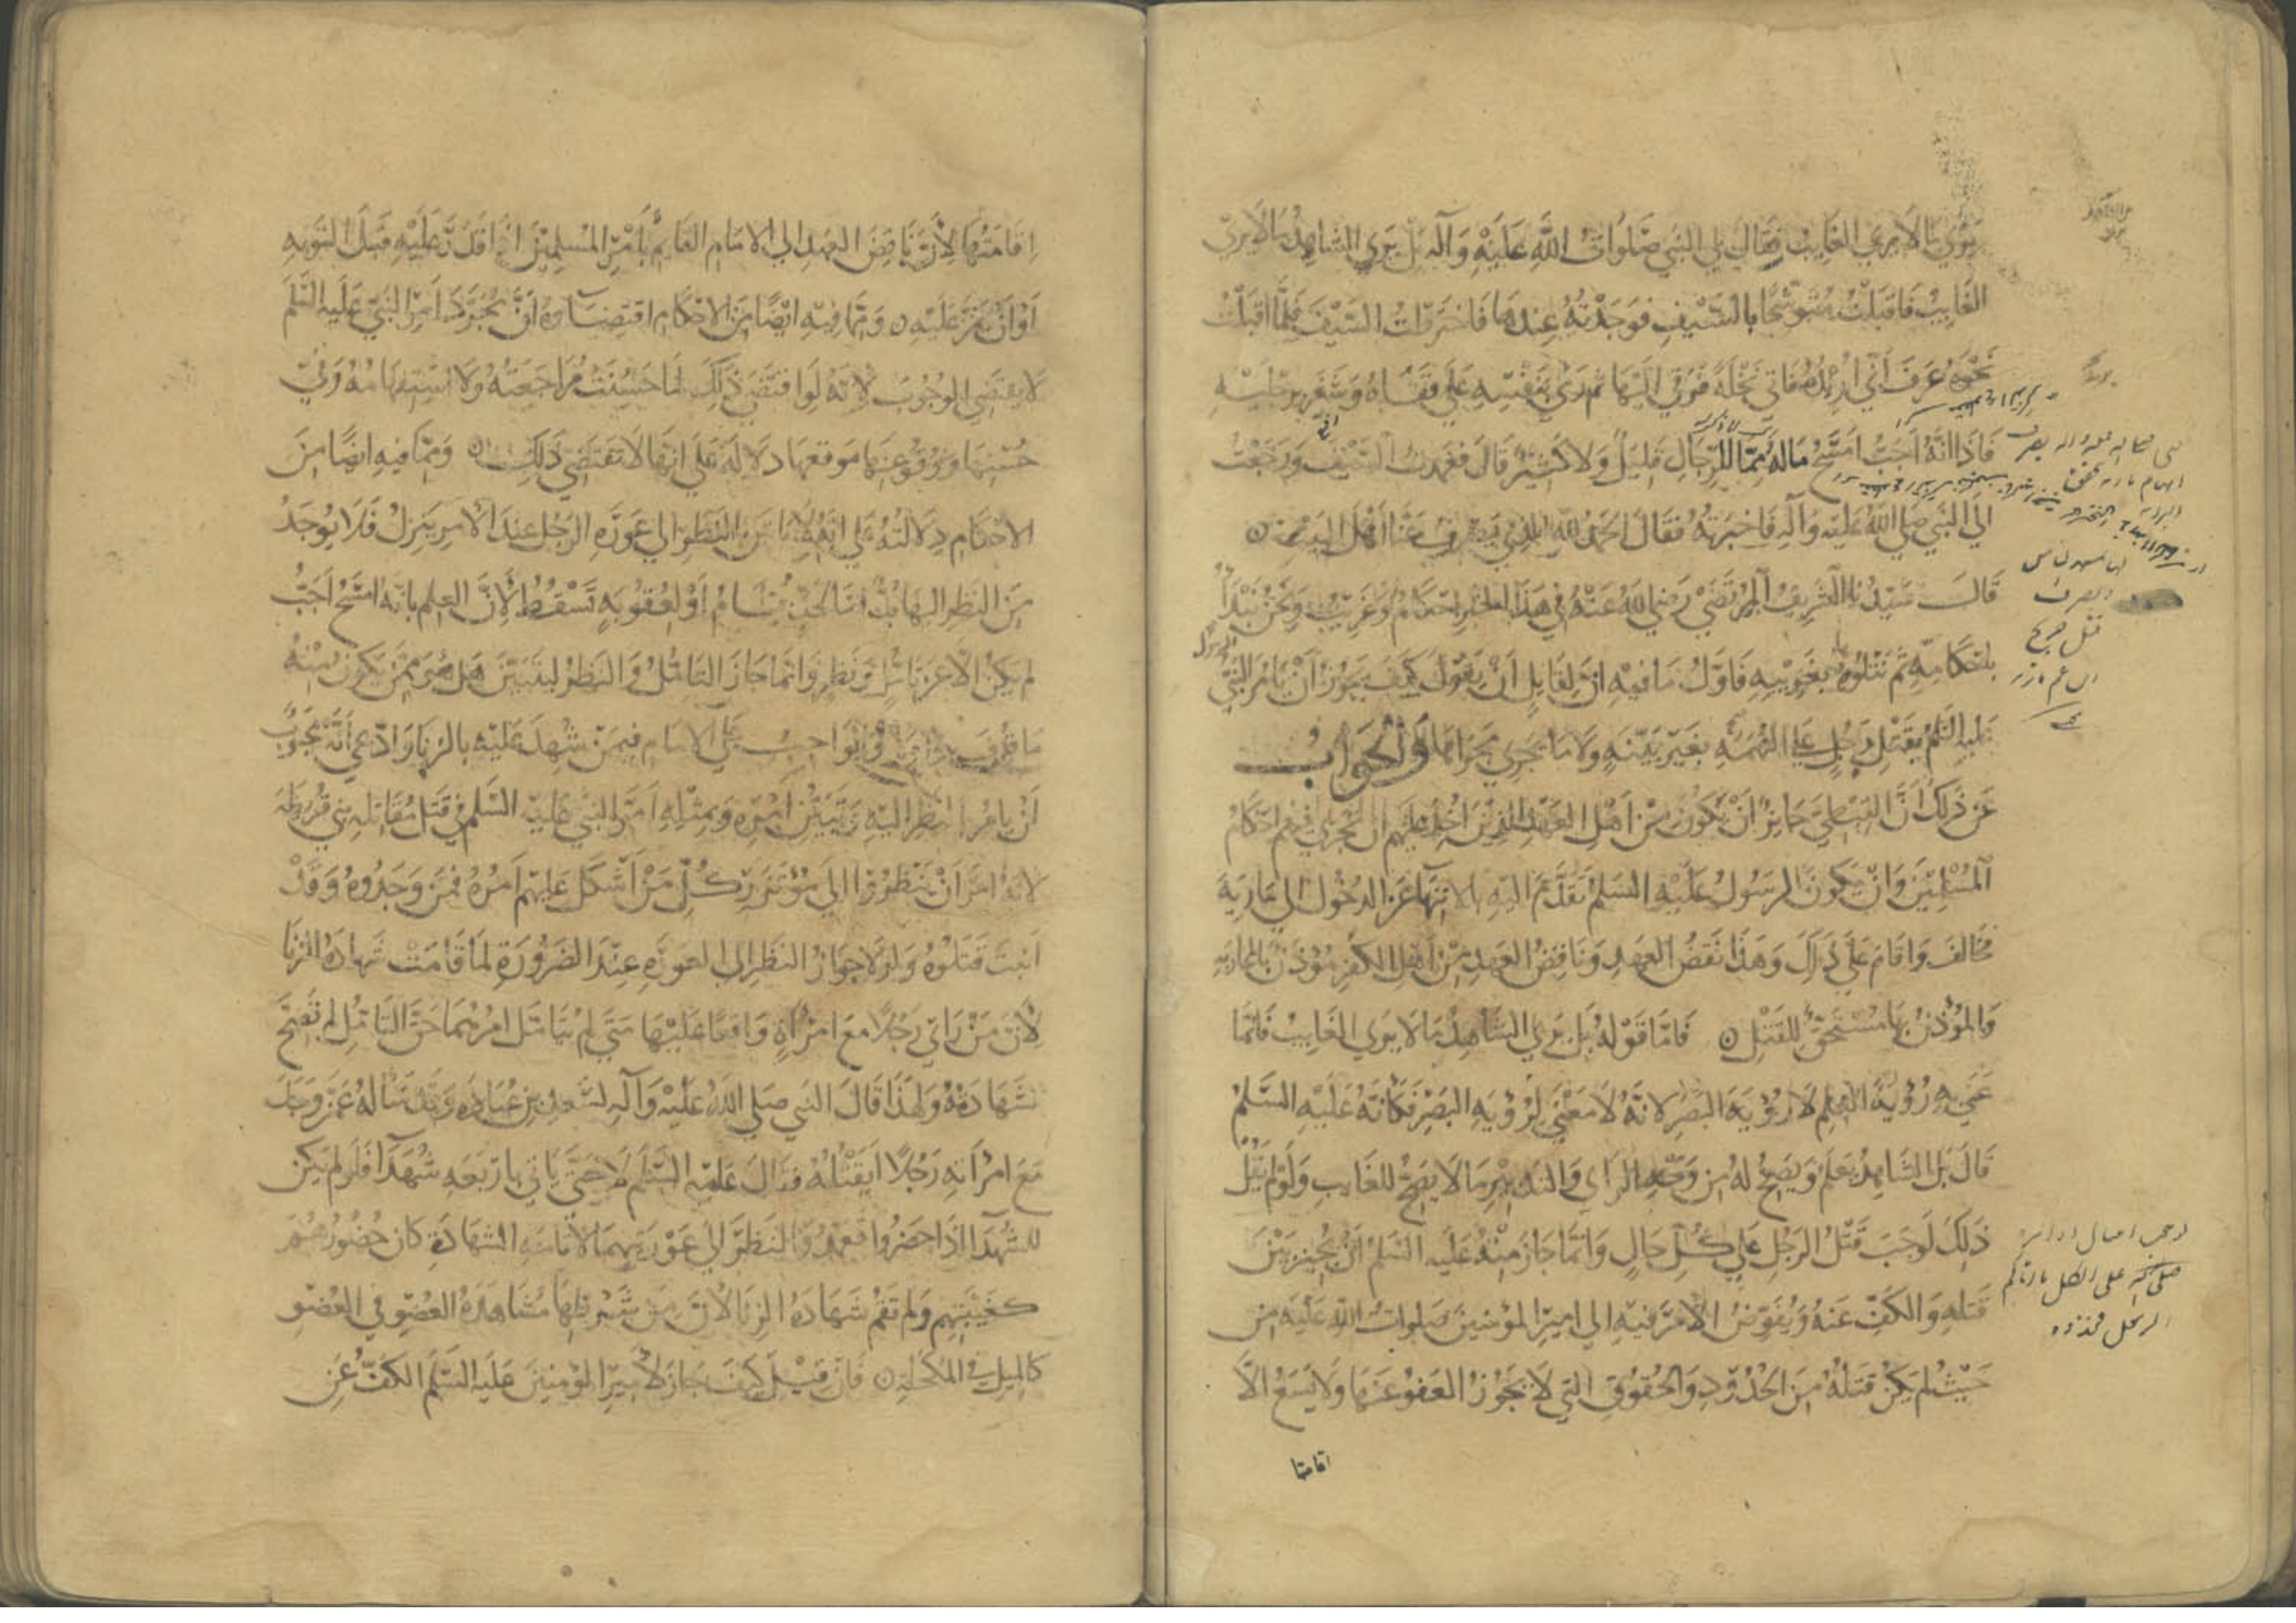 يرى ما لا يرى الغايب فقال لي النبي صلوات الله عليه وآله بل يرى الشاهد ما لا يرى
الغايب فاقبلت متوشحا بالسيف فوجدته عندها فاخترطت السيف فلما اقبلت
نحوه عرف أني اريده فاتى نخلة فرقي اليها ثم رمى بنفسه على قفاه وشغر برجليه
فاذا انه أجب امسح ماله مما للرجال قليل ولا كثير قال فغمدت السيف ورجعت
الى النبي صلى الله عليه وآله فاخبرته فقال الحمد لله الذي يصرف عنا أهل البيت ٥
قال سيدنا الشريف المرتضى رضي الله عنه في هذا الخبر احكام وغريب ونحن نبدأ
باحكامه ثم نتلوه بغريبه فاول ما فيه ان لقايل أن يقول كيف يجوز أن يأمر النبي
عليه السلم بقتل رجل على التهمة بغير بينة ولا ما يجري مجراها والجواب
عن ذلك أن القبطي جايز أن يكون من اهل العهد الذين اخذ عليهم ان تجري فيهم احكام
المسلمين وان يكون الرسول عليه السلم تقدم اليه بالانتهاء عن الدخول الى مارية
فخالف واقام على ذلك وهذا نقض للعهد وناقض العهد من أهل الكفر مؤذن بالمحاربة
والمؤذن بها مستحق للقتل ٥ فاما قوله بل يرى الشاهد ما لا يرى الغايب فانما
عنى به رؤية العلم لا رؤية البصر لانه لا معنى لرؤية البصر فكانه عليه السلم
قال بل الشاهد يعلم ويصح له من وجه الراي والتدبير ما لا يصح للغايب ولو لم يقل
ذلك لوجب قتل الرجل على كل حال وانما جاز منه عليه السلم أن يخير بين
قتله والكف عنه ويفوض الأمر فيه الى امير المؤمنين صلوات الله عليه من
حيث لم يكن قتله من الحدود والحقوق التي لا يجوز العفو عنها ولا يسع الا
اقامتها
إقامتها لأن ناقض العهد الى الامام القائم بأمر المسلمين اذا قدر عليه قبل التوبه
أو ان يمن عليه ٥ ومما فيه ايضا من الاحكام اقتضاؤه أن مجرد أمر النبي عليه السلم
لا يقتضي الوجوب لانه لو اقتضى ذلك لما حسنت مراجعته ولا استفهامه وفي
حسنها ووقوعها موقعها دلالة على انها لا تقتضي ذلك ٥ ومما فيه ايضا من
الاحكام دلالته على انه لا بأس بالنظر الى عورة الرجل عند الأمر ينزل فلا يوجد
من النظر اليها بد اما لحد يقام أو لعقوبة تسقط لأن العلم بأنه امسح أجب
لم يكن الا عن تأمل ونظر وانما جاز التامل والنظر ليتبين هل هو ممن يكون منه
ما قرف به أم لا والواجب على الامام فيمن شهد عليه بالزنا وادعى أنه مجبوب
أن يأمر بالنظر اليه وتبين أمره وبمثله أمر النبي عليه السلم في قتل مقاتلة بني قريظة
لانه امر أن ينظروا الى مؤتزر كل من أشكل عليهم أمره فمن وجدوه وقد
انبت قتلوه ولولا جواز النظر الى العورة عند الضرورة لما قامت شهادة الزنا
لأن من رأى رجلا مع امرأة واقعا عليها متى لم يتأمل امرهما حق التأمل لم تصح
شهادته ولهذا قال النبي صلى الله عليه وآله لسعد بن عبادة وقد سأله عمن وجد
مع امرأته رجلا أيقتله فقال عليه السلم لا حتى ياتي باربعة شهدا فلو لم يكن
للشهدا اذا حضروا تعمد والنظر الى عورتيهما لاقامة الشهادة كان حضورهم
كغيبتهم ولم تقم شهادة الزنا لأن من شرطها مشاهدة العضو في العضو
كالميل في المكحلة ٥ فان قيل كيف جاز لأمير المؤمنين عليه السلم الكف عن